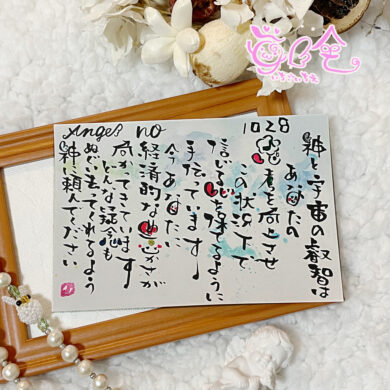 Angel no 1028
神と宇宙の叡智は
あなたの
思考を向上させ
この状況下で
信じて♡を保てるように
手伝っています
今あなたに
経済的な豊かさが
向かってきています
どんな疑念も
ぬぐい去ってくれるよう
神に頼んでください